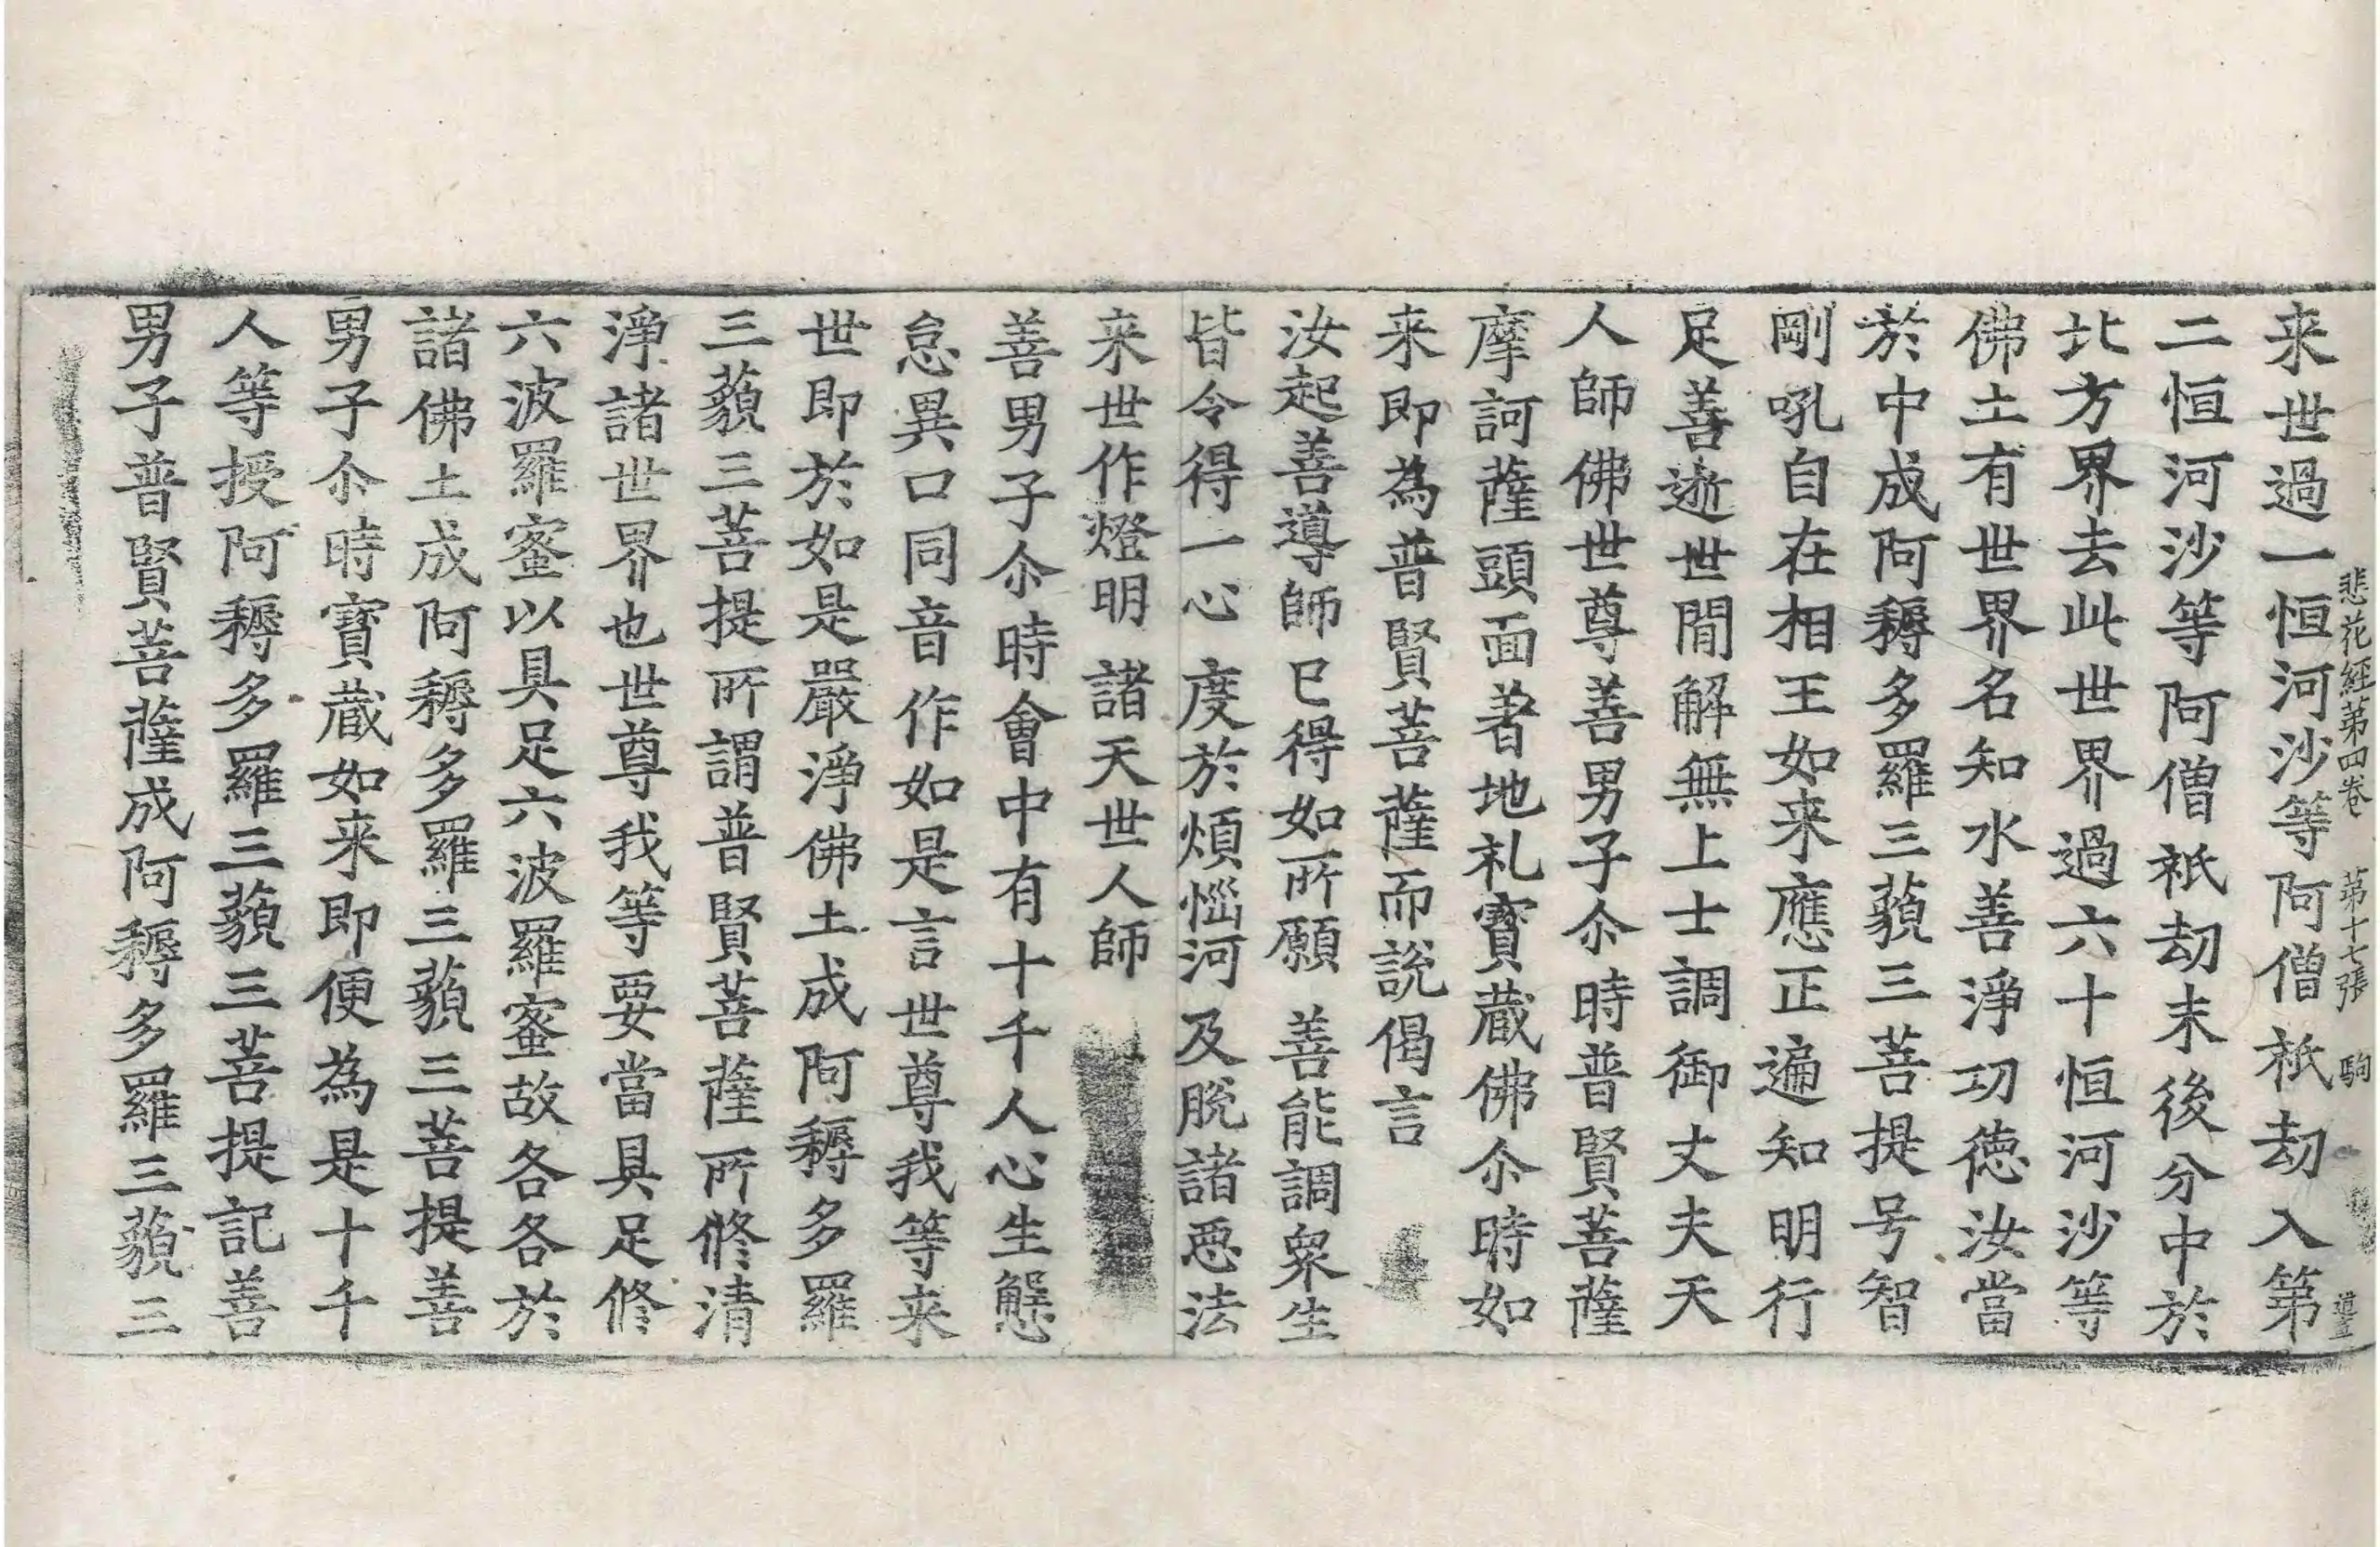 悲花經第四卷 第十七張 駒
来世過一恒河沙等阿僧祇劫入第
二恒河沙等阿僧祇劫末後分中於
北方界去此世界過六十恒河沙等
佛土有世界名知水善淨功德汝當
於中成阿耨多羅三藐三菩提号智
剛吼自在相王如来應正遍知明行
足善逝世間解無上士調御丈夫天
人師佛世尊善男子尒時普賢菩薩
摩訶薩頭面著地礼寶蔵佛尒時如
来即為普賢菩薩而說偈言
汝起善導師 巳得如所願 善能調衆生
皆令得一心 度於煩惱河 及脫諸惡法
来世作燈明 諸天世人師
善男子尒時會中有十千人心生懈
怠異口同音作如是言世尊我等来
世即於如是嚴淨佛土成阿耨多羅
三藐三菩提所謂普賢菩薩所修清
淨諸世界也世尊我等要當具足修
六波羅蜜以具足六波羅蜜故各各於
諸佛土成阿耨多羅三藐三菩提善
男子尒時寶蔵如来即便為是十千
人等授阿耨多羅三藐三菩提記善
男子普賢菩薩成阿耨多羅三藐三